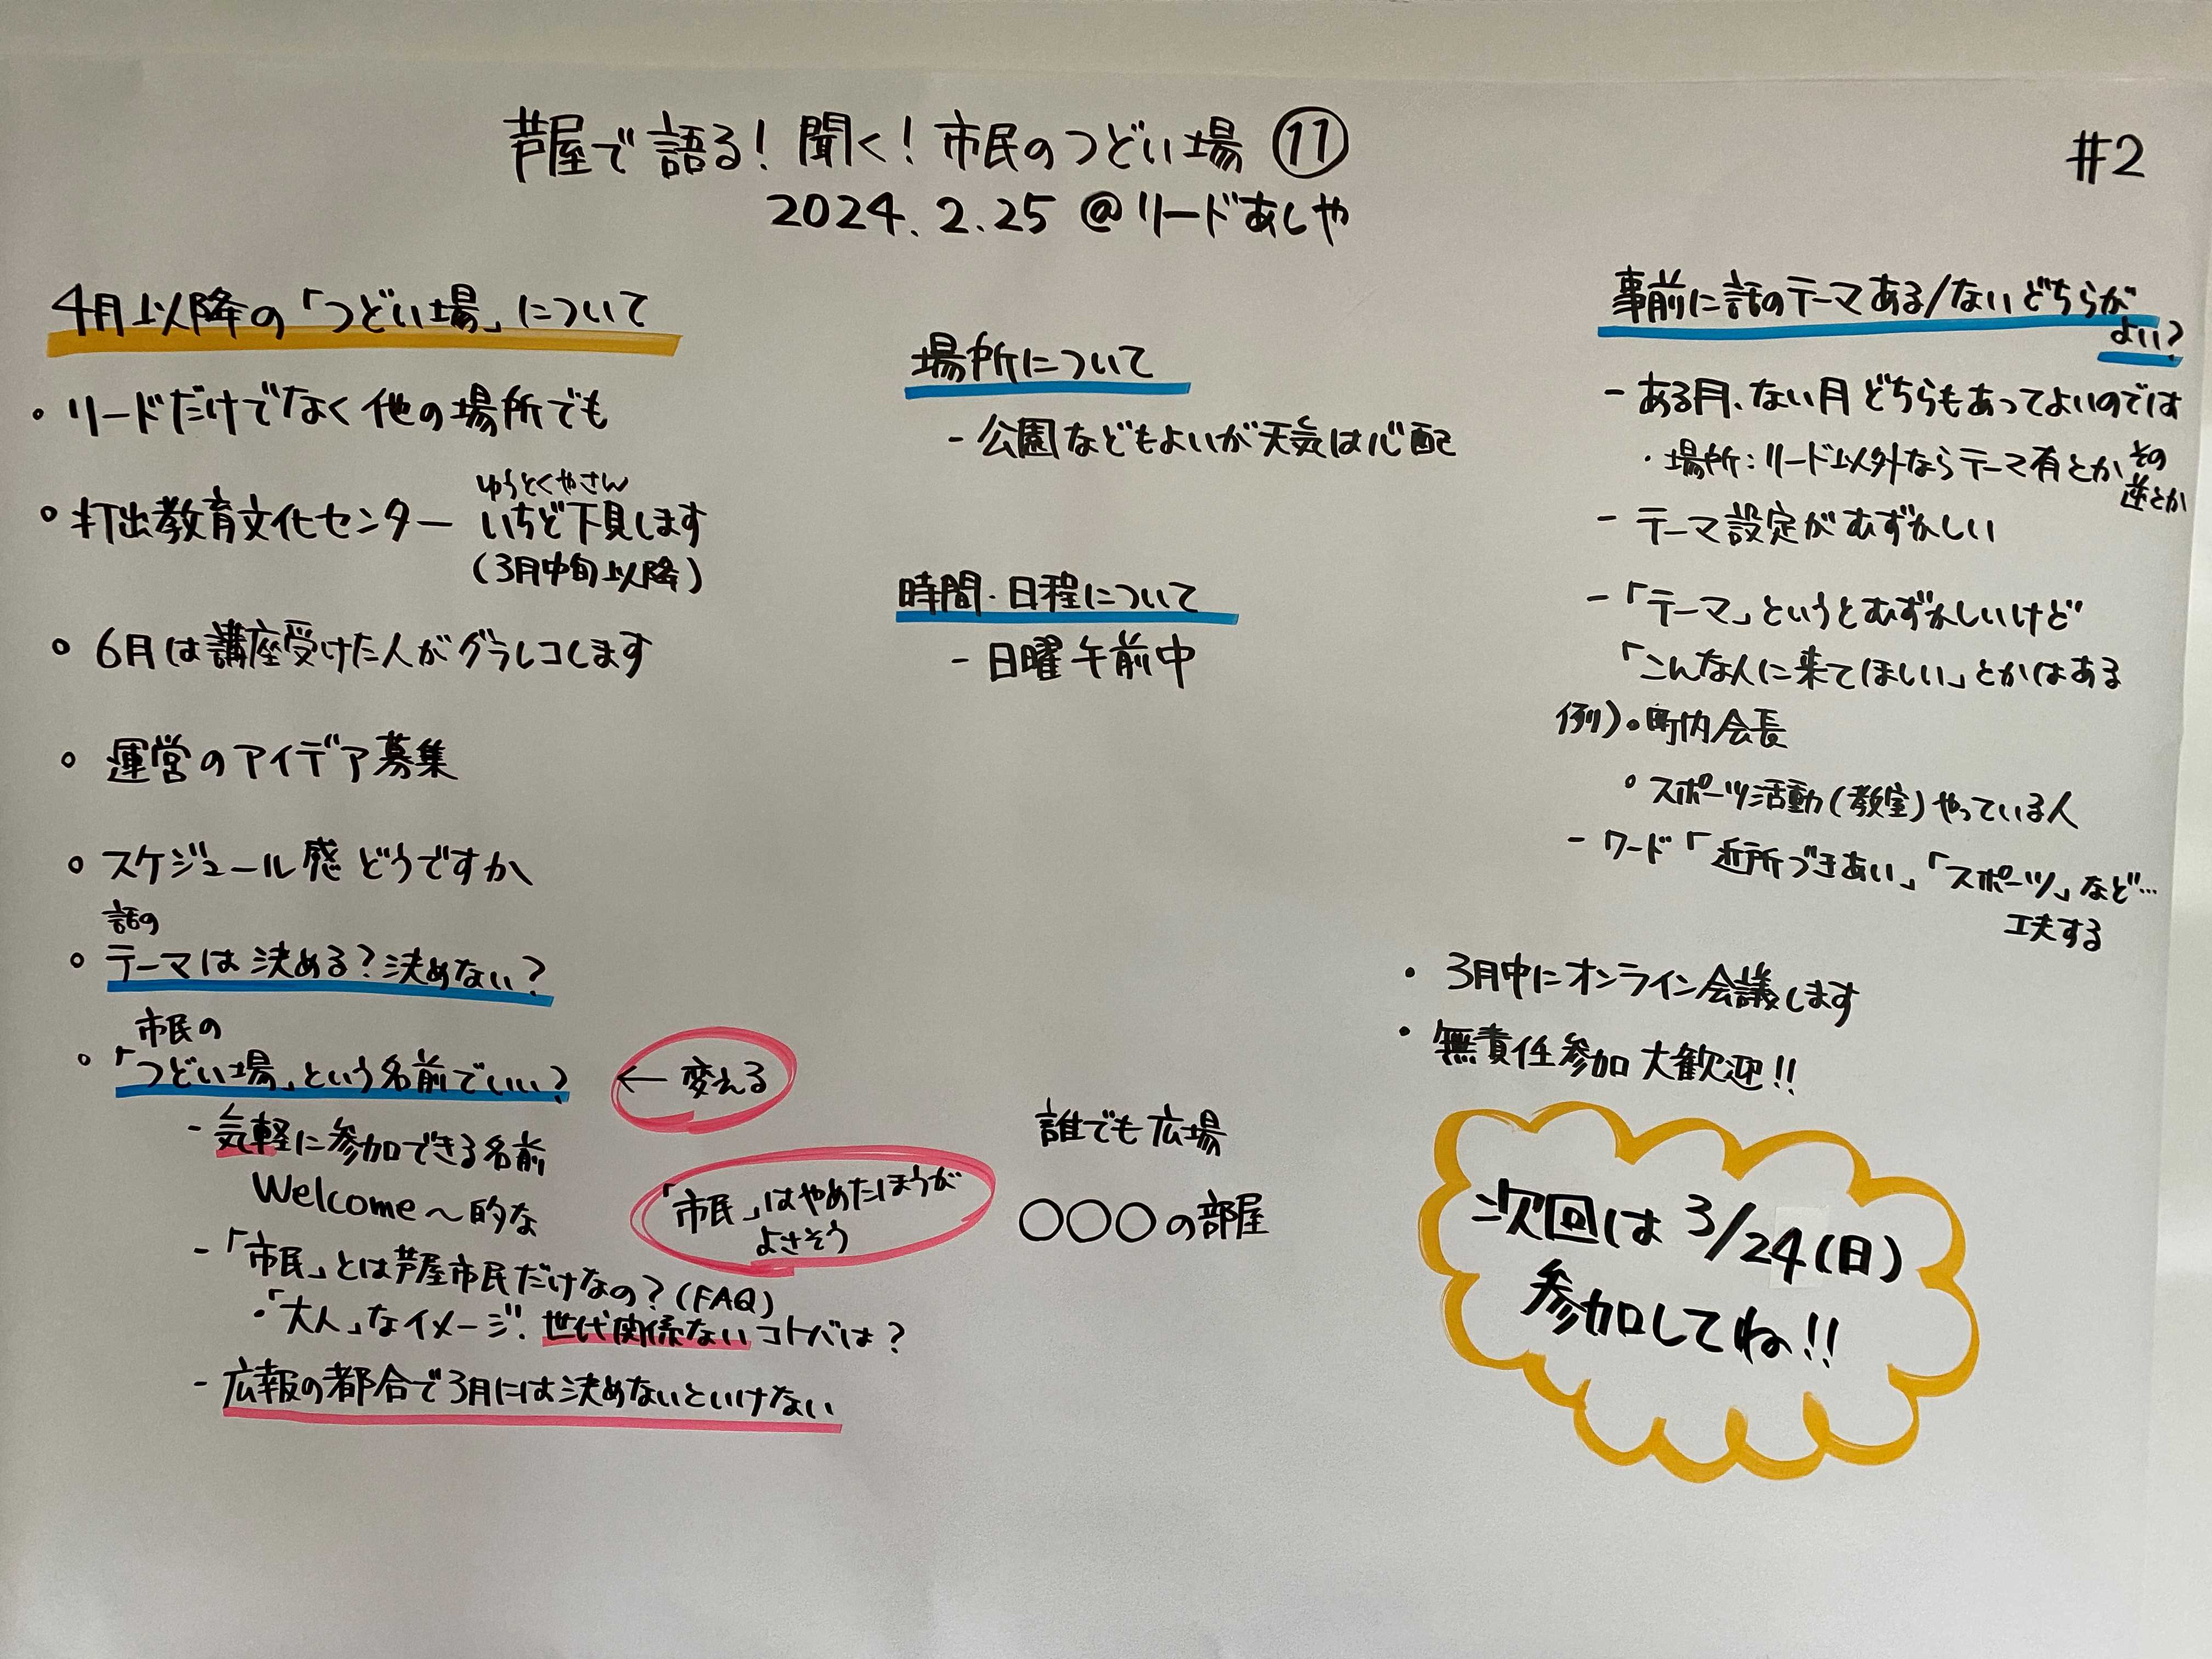 芦屋で語る!聞く!市民のつどい場 ⑪
2024.2.25 @リードあしや
#2
4月以降の「つどい場」について
・リードだけでなく他の場所でも
ゆうとくやさん
○打出教育文化センター いちど下見します
(3月中旬以降)
○6月は講座受けた人がグラレコします
○運営のアイデア募集
○スケジュール感どうですか
話の
○テーマは決める?決めない?
市民の
○「つどい場」という名前でいい?
← 変える
- 気軽に参加できる名前
Welcome～的な
「市民」はやめたほうが
よさそう
- 「市民」とは芦屋市民だけなの?(FAQ)
・「大人」なイメージ.世代関係ないコトバは?
- 広報の都合で3月には決めないといけない
場所について
- 公園などもよいが天気は心配
時間・日程について
- 日曜午前中
誰でも広場
○○○の部屋
事前に話のテーマある/ないどちらが
よい?
- ある月、ない月どちらもあってよいのでは
・場所:リード以外ならテーマ有とか その
逆とか
- テーマ設定がむずかしい
- 「テーマ」というとむずかしいけど
「こんな人に来てほしい」とかはある
例)○町内会長
○スポーツ活動(教室)やっている人
- ワード「近所づきあい」「スポーツ」など…
工夫する
・3月中にオンライン会議します
・無責任参加大歓迎!!
次回は3/24(日)
参加してね!!